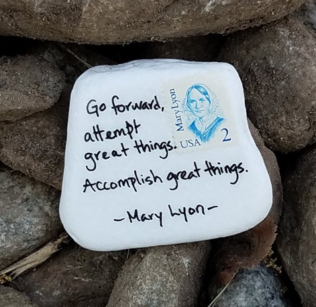 Go forward,
attempt
great things.
Accomplish great things.
-Mary Lyon-
Mary Lyon
USA 2